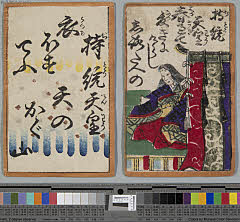 持統
天皇
春すぎて
夏きに
けらし
しろたへの
持統天皇
衣ほす
てふ
天の
かぐ山